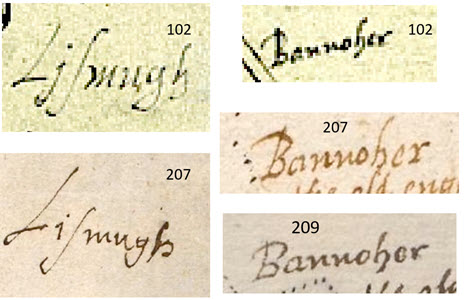 102
Liſmugh
207
Liſmugh
102
Bannoher
207
Bannoher
the old eng
209
Bannoher